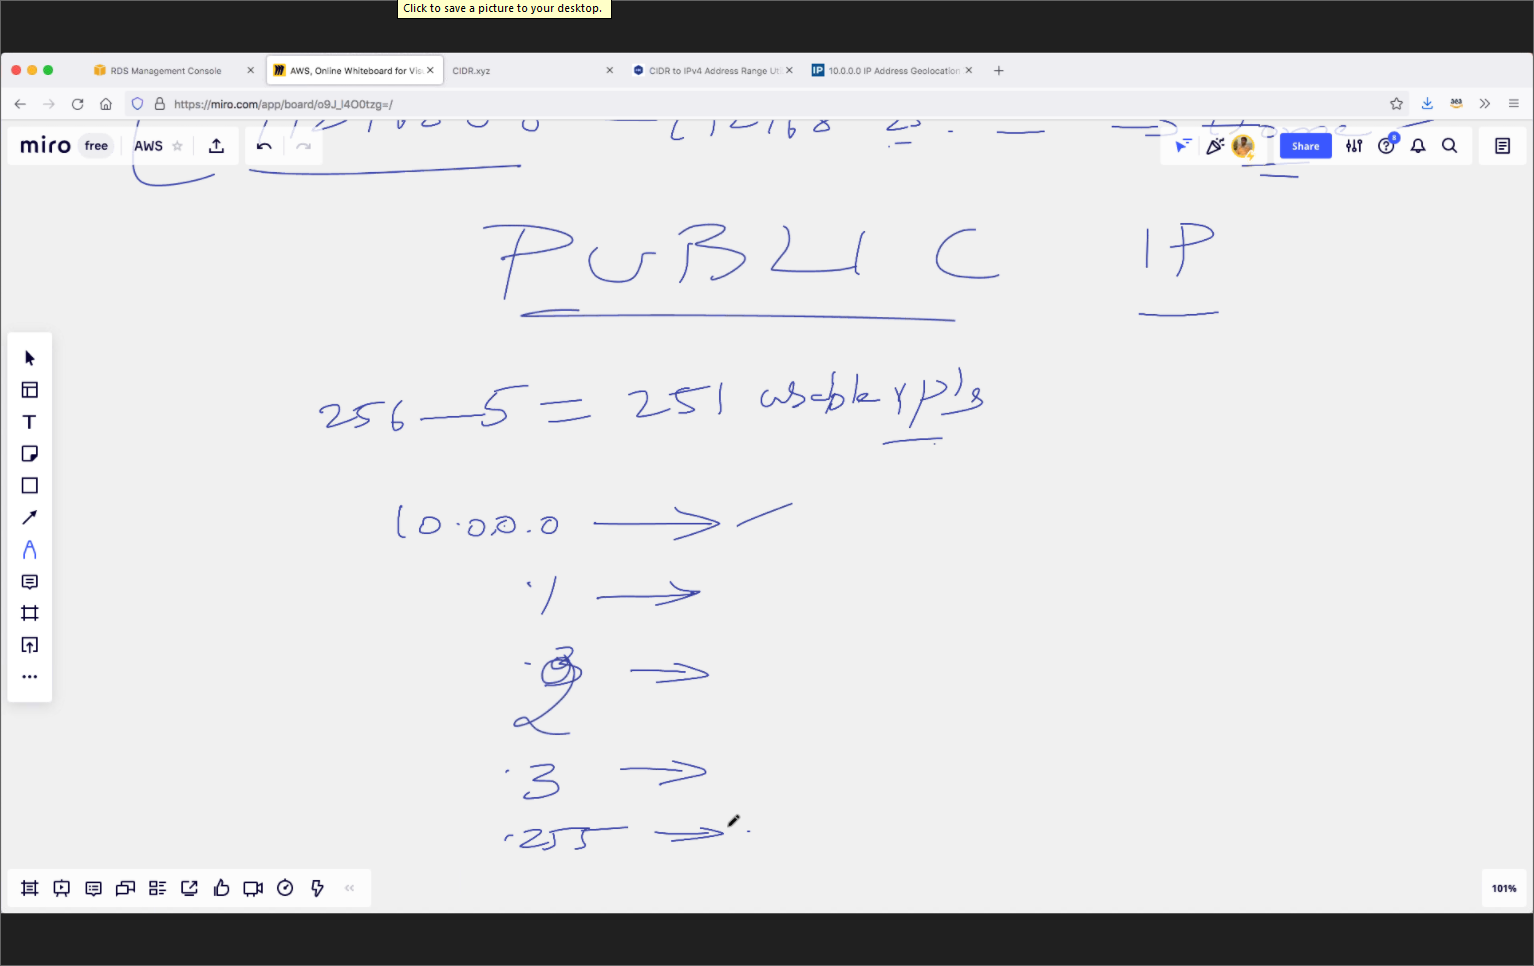 Click to save a picture to your desktop.
RDS Management Console
AWS, Online Whiteboard for Vis
CIDR.xyz
CIDR to IPv4 Address Range Ut
10.0.0.0 IP Address Geolocation
https://miro.com/app/board/o9J_l4O0tzg=/
miro free AWS Share
PUBLIC IP
256 — 5 = 251 usable IP's
10.0.0.0
.1
2
.3
.255
101%